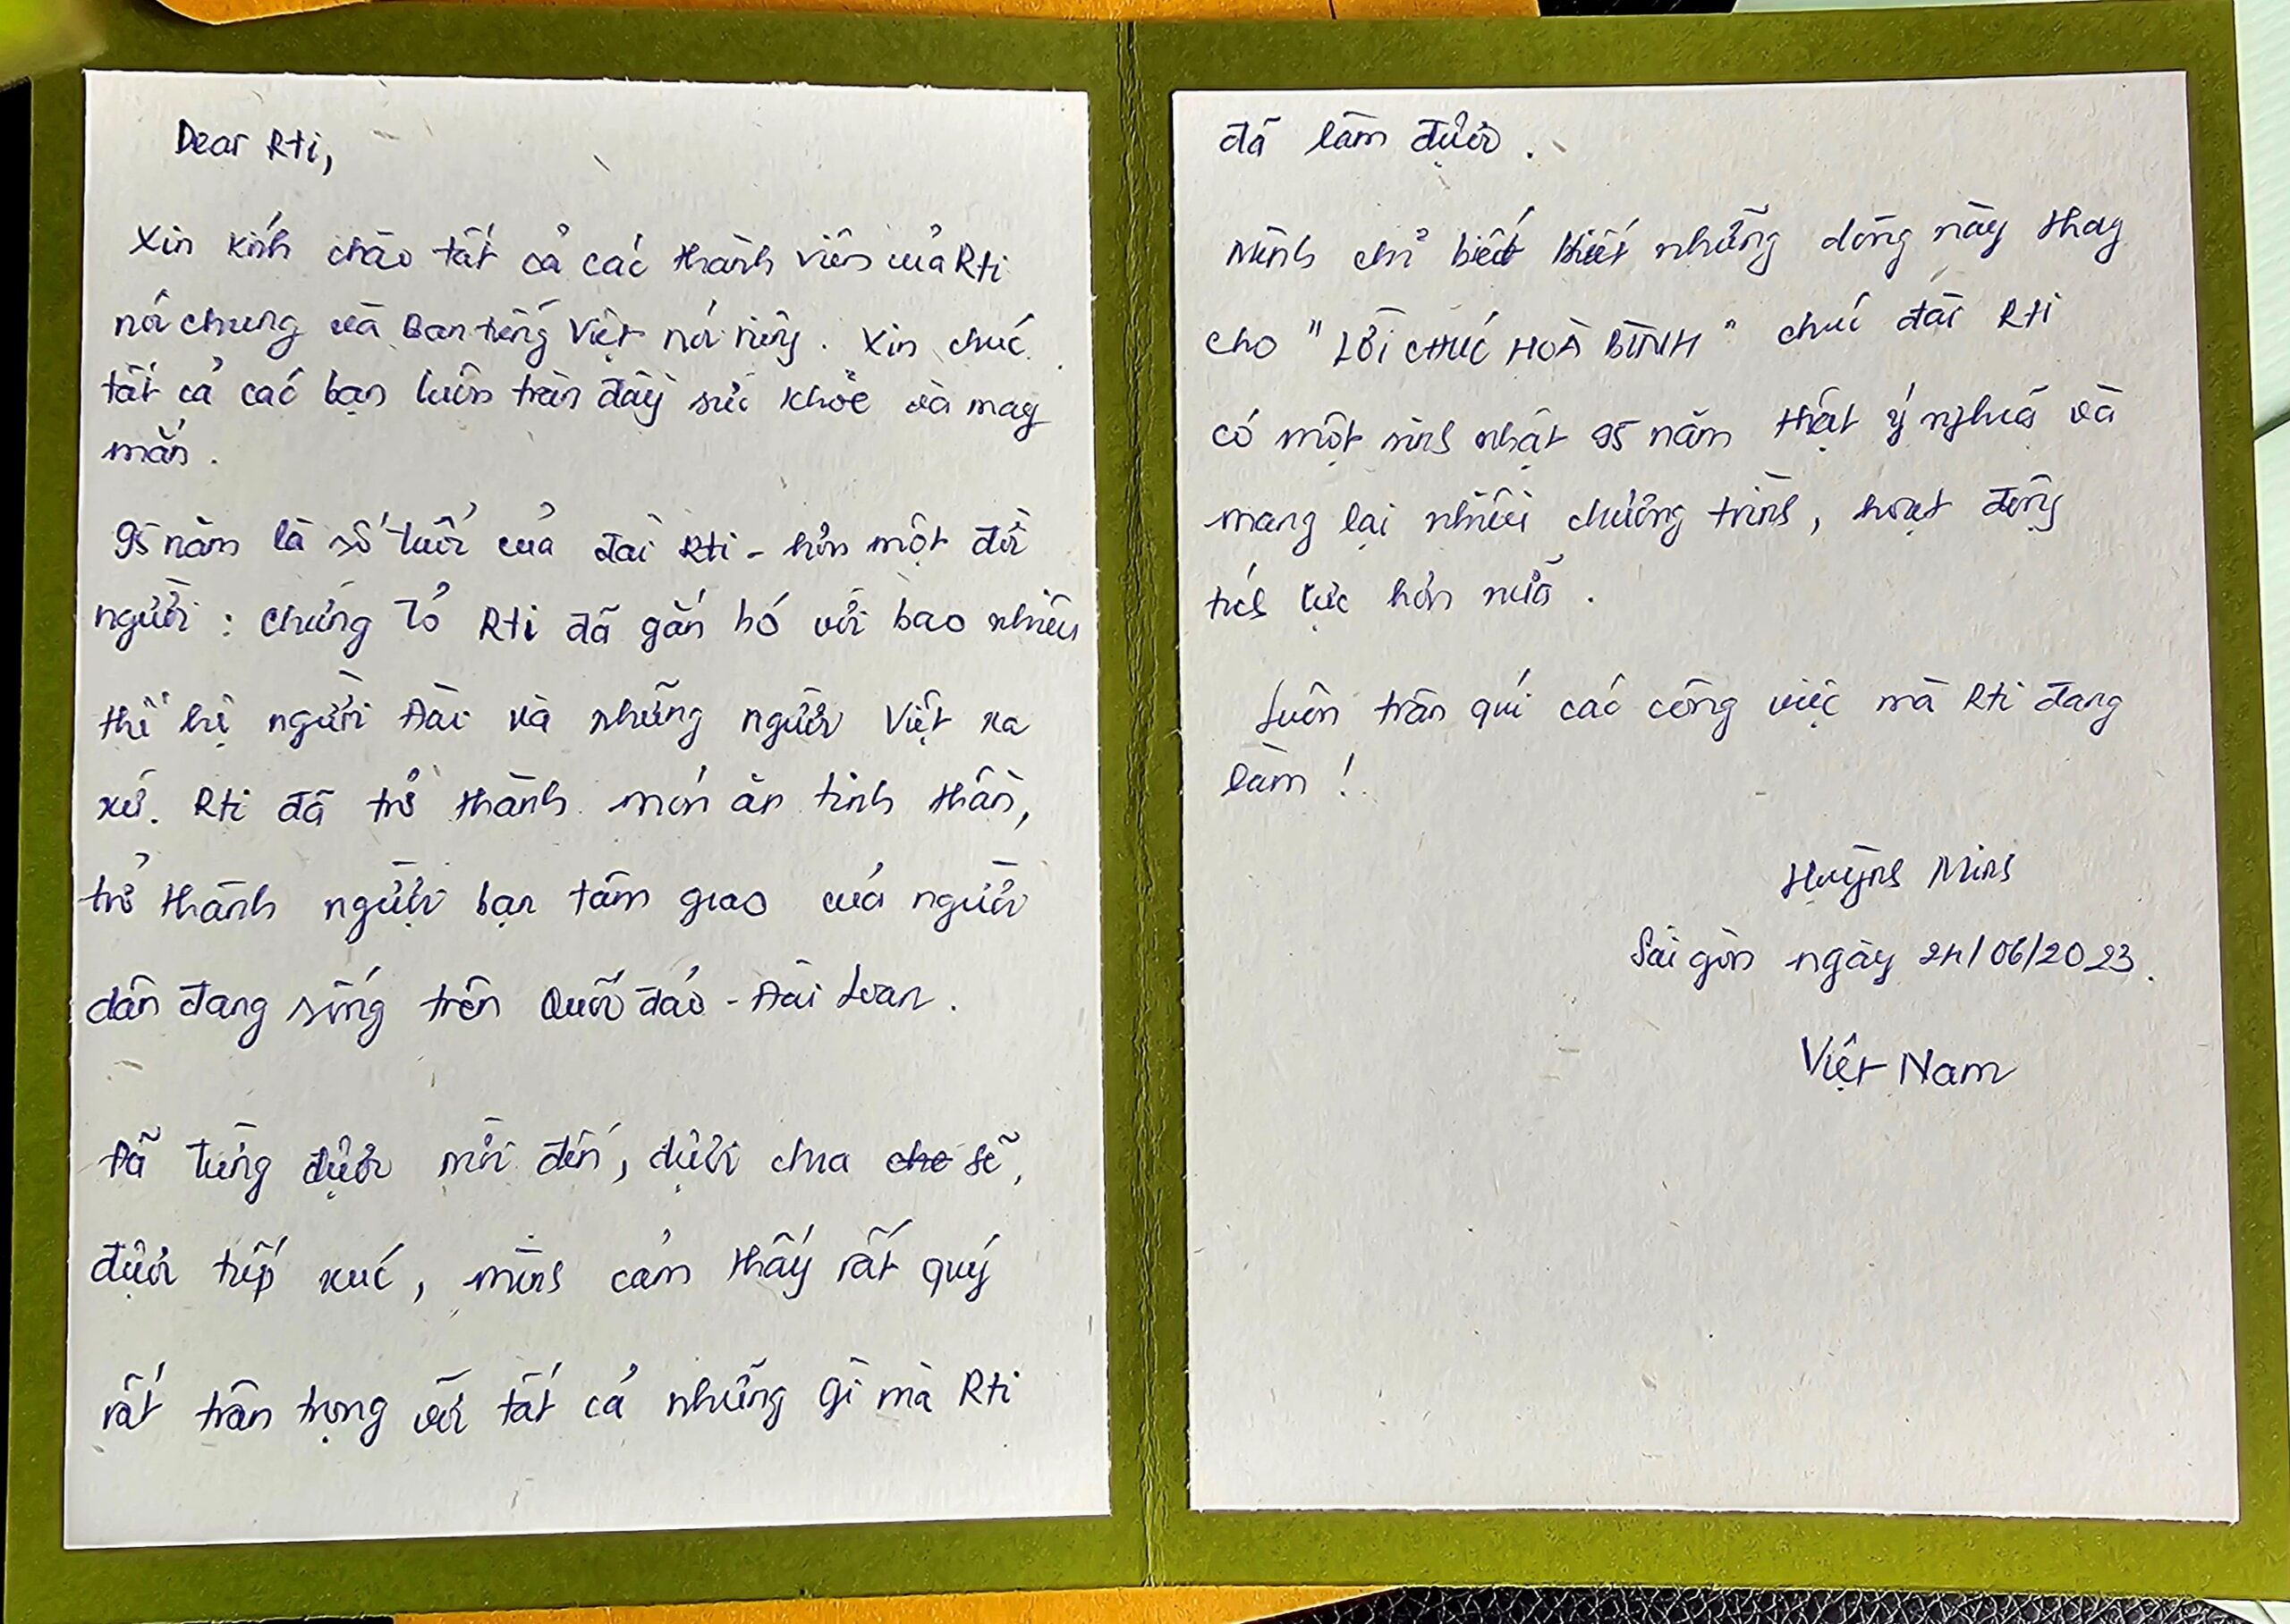 Dear Rti,
Xin kính chào tất cả các thành viên của Rti
nói chung và Ban tiếng Việt nói riêng. Xin chúc
tất cả các bạn luôn tràn đầy sức khỏe và may
mắn.
95 năm là số tuổi của đài Rti - hơn một đời
người : chứng tỏ Rti đã gắn bó với bao nhiêu
thế hệ người Đài và những người Việt xa
xứ. Rti đã trở thành món ăn tinh thần,
trở thành người bạn tâm giao của người
dân đang sống trên Quốc đảo - Đài Loan.
Đã từng được mời đến, được chia sẽ,
được tiếp xúc, mình cảm thấy rất quý
rất trân trọng với tất cả những gì mà Rti
đã làm được.
Mình chỉ biết viết những dòng này thay
cho "LỜI CHÚC HOÀ BÌNH" chúc đài Rti
có một sinh nhật 95 năm thật ý nghĩa và
mang lại nhiều chương trình, hoạt động
tích cực hơn nữa.
Luôn trân quí các công việc mà Rti đang
làm !
Huỳnh Minh
Sài gòn ngày 24/06/2023.
Việt Nam